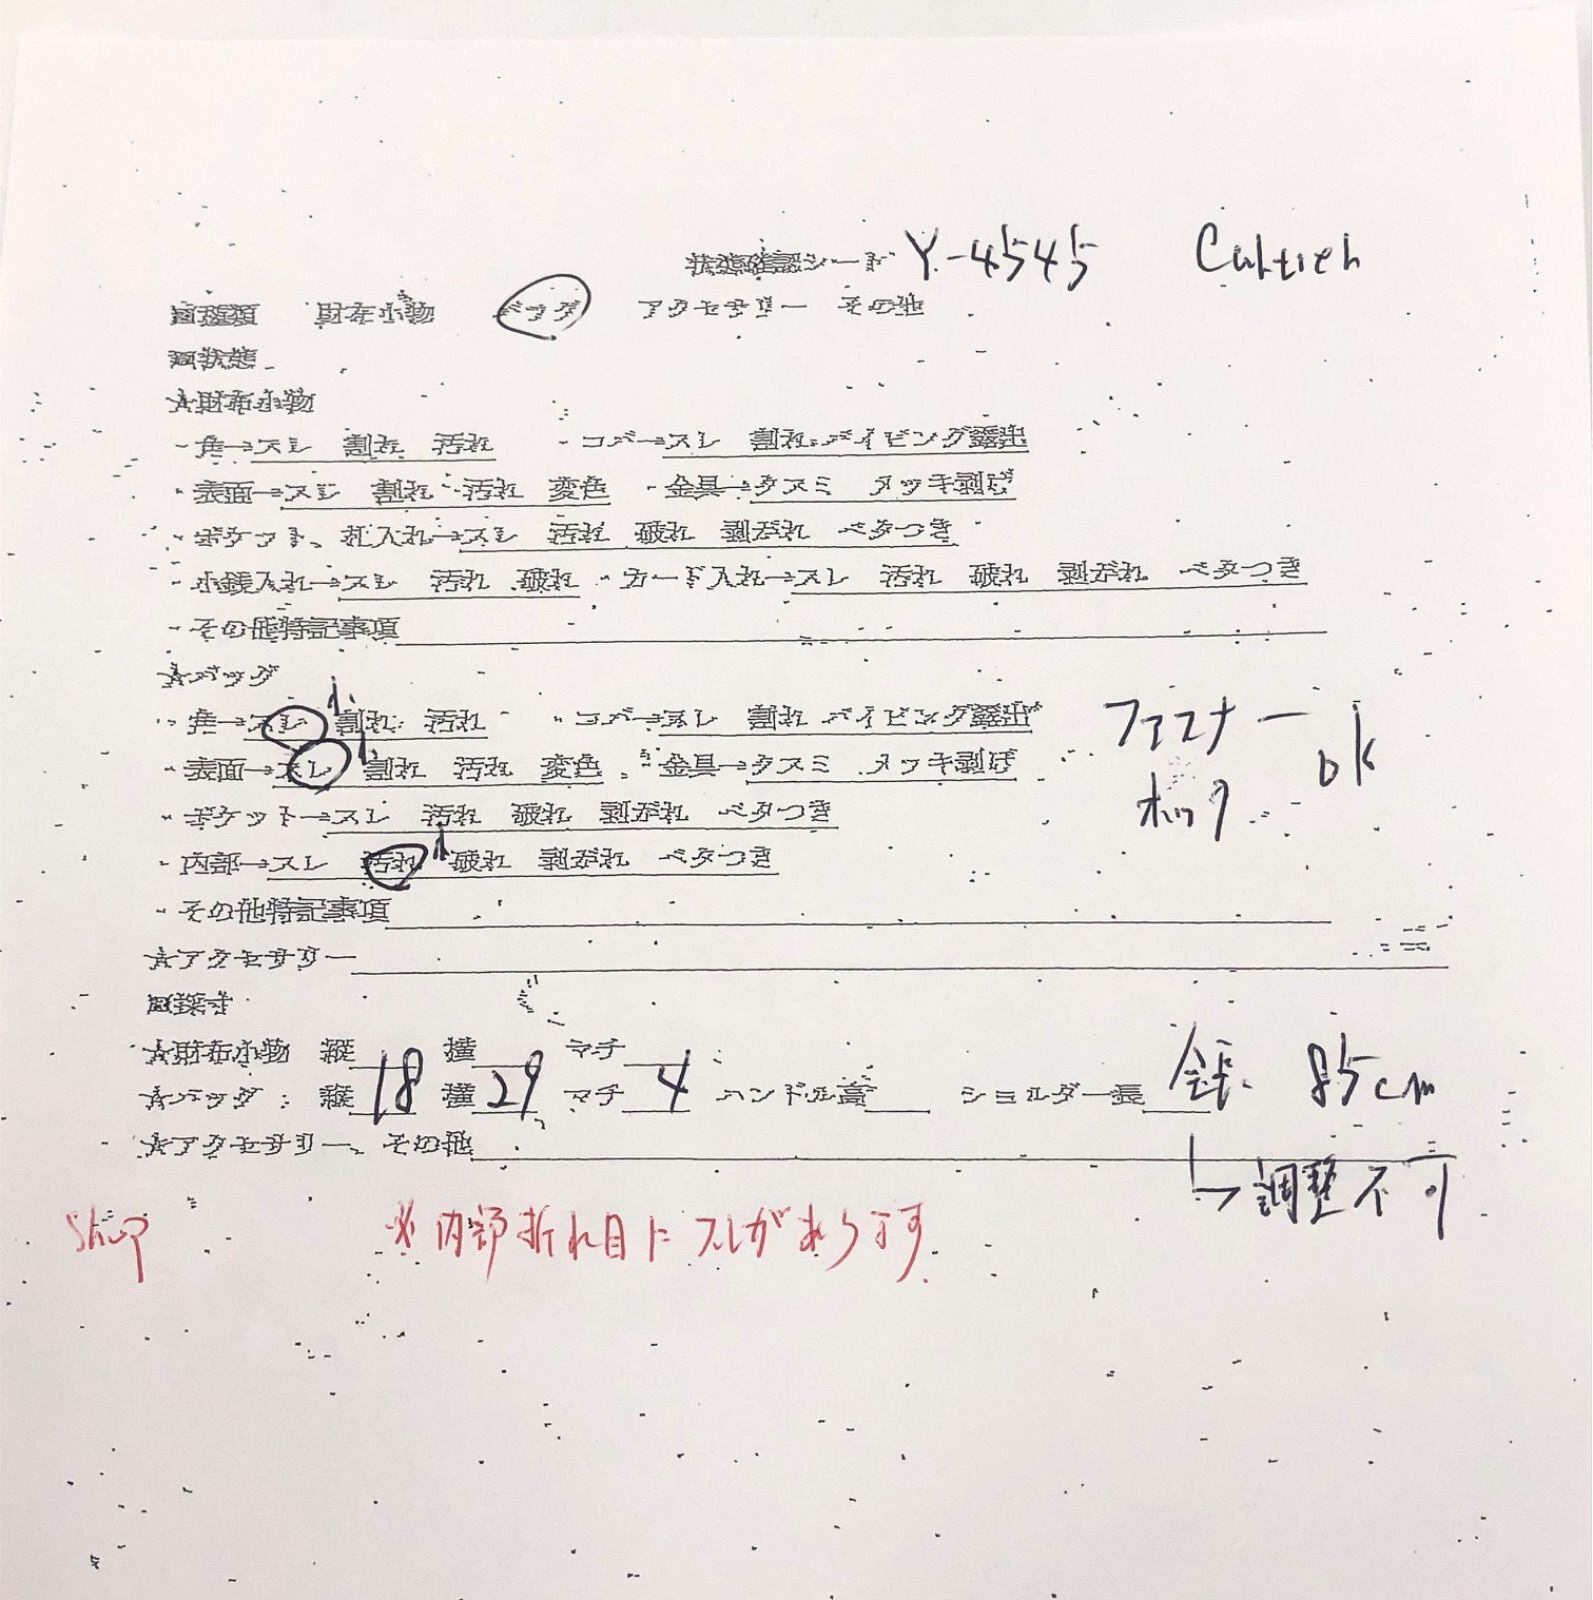 状態確認シート Y-4545 Cartier
回種類 財布小物 バッグ アクセサリー その他
回状態
★財布小物
・角→スレ 割れ 汚れ ・コバ→スレ 割れ パイピング露出
・表面→スレ 割れ 汚れ 変色 ・金具→クスミ メッキ剥げ
・ポケット、札入れ→スレ 汚れ 破れ 剥がれ ベタつき
・小銭入れ→スレ 汚れ 破れ ・カード入れ→スレ 汚れ 破れ 剥がれ ベタつき
・その他特記事項
★バッグ
・角→スレ 小 割れ 汚れ ・コバ→スレ 割れ パイピング露出 ファスナー
・表面→スレ 小 割れ 汚れ 変色 ・金具→クスミ メッキ剥げ OK
・ポケット→スレ 汚れ 破れ 剥がれ ベタつき ホック
・内部→スレ 汚れ 小 破れ 剥がれ ベタつき
・その他特記事項
★アクセサリー
回採寸
★財布小物 縦 横 マチ
★バッグ：縦18 横29 マチ4 ハンドル高 ショルダー長 全長 85cm
★アクセサリー、その他
→調整不可
Shop ※内部折れ目にスレがあります